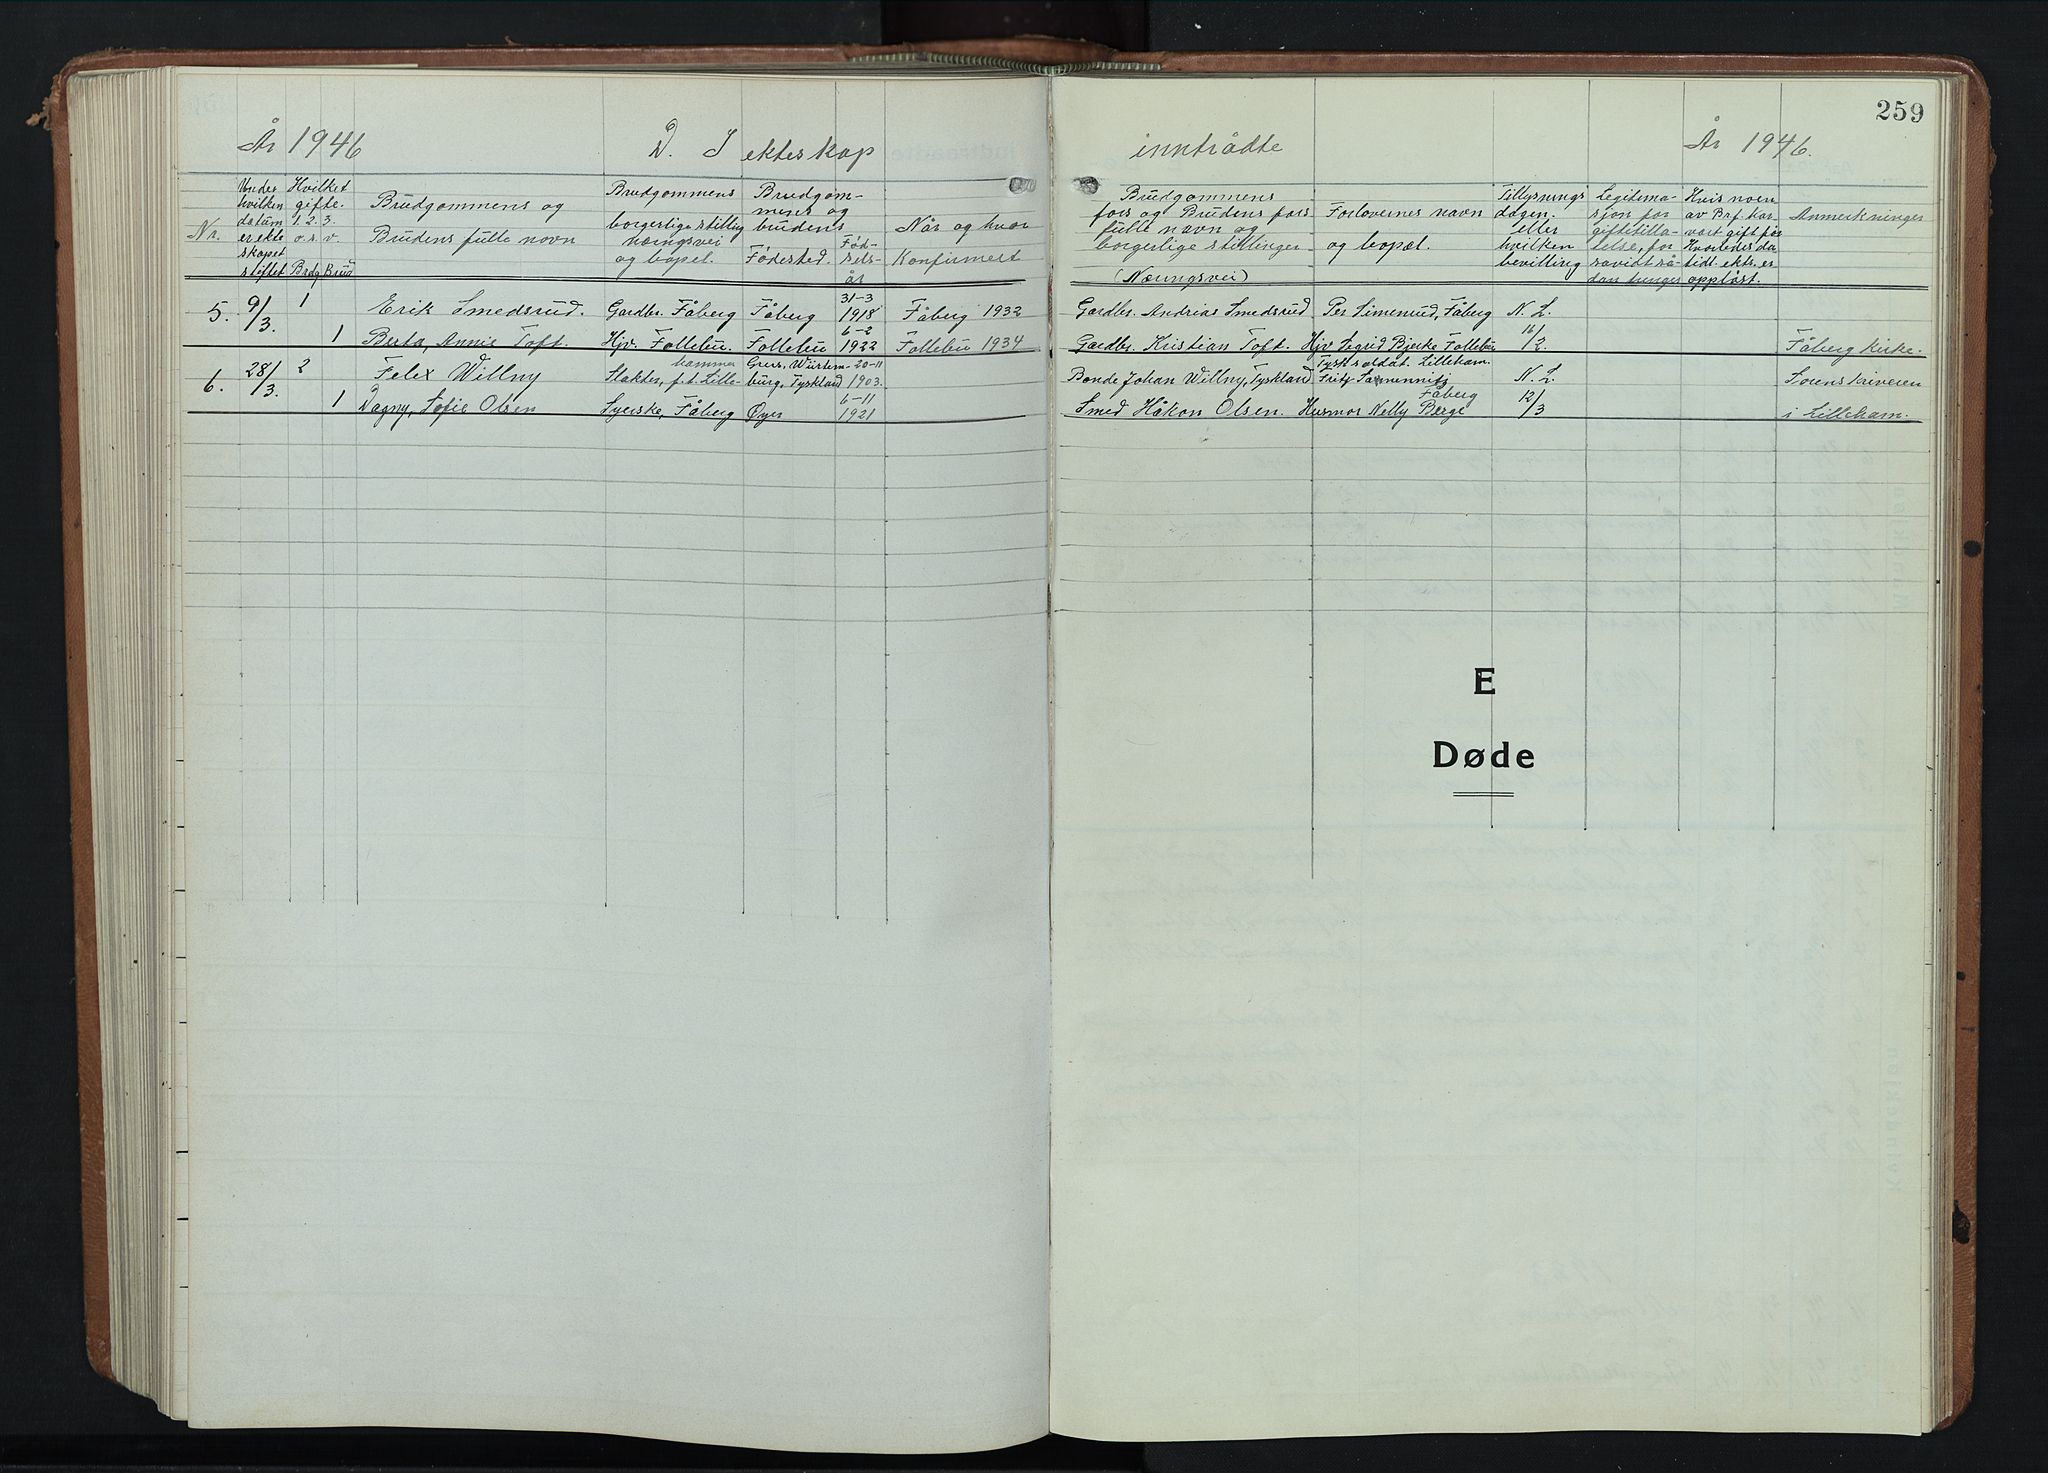 259
År 1946 D. I ekteskap inntrådte År 1946.
Nr.
Under hvilken datum er ekteskapet stiftet
Hvilket gifte. 1. 2. 3. o.s.v. Brdg Brud
Brudgommens og Brudens fulle navn
Brudgommens borgerlige stilling næringsvei og bopel.
Brudgommens og brudens Fødested. Fødselsår
Når og hvor Konfirmert
Brudgommens fars og Brudens fars fulle navn og borgerlige stillinger (Næringsvei)
Forlovernes navn og bopæl.
Tillysningsdagen. eller hvilken bevilling
Legitimasjon for giftetillatelse, for såvidt sådan trenges
Hvis noen av Brf. har vært gift før Hvorledes da tidl. ekts. er oppløst.
Anmerkninger
5. 9/3. 1 Erik Smedsrud. Gardbr. Fåberg Fåberg 31-3 1918 Fåberg 1932 Gardbr. Andrias Smedsrud Per Simensrud, Fåberg N. L.
1 Berta, Annie Toft. Hjv. Follebu. Follebu 6-2 1922 Follebu 1934 Gardbr. Kristian Toft. Hjv Sigrid Bjerke Follebu 16/2. Fåberg kirke.
6. 28/3. 2 Felex Willny Slakter, f.t. Lillehammer Grevs. Würtemburg, Tyskland 20-11 1903. Bonde Johan Willny, Tyskland Tysk soldat. Lilleham. Fritz N. L. Sorenskriveren
1 Dagny, Sofie Olsen Syerske, Fåberg Øyer 6-11 1921 Smed Håkon Olsen. Husmor Nelly Berge Fåberg 12/3 i Lilleham.
E
Døde